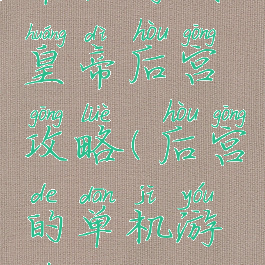 huáng dì hòu gōng
皇帝后宫
gōng lüè hòu gōng
攻略(后宫
de dān jī yóu
的单机游